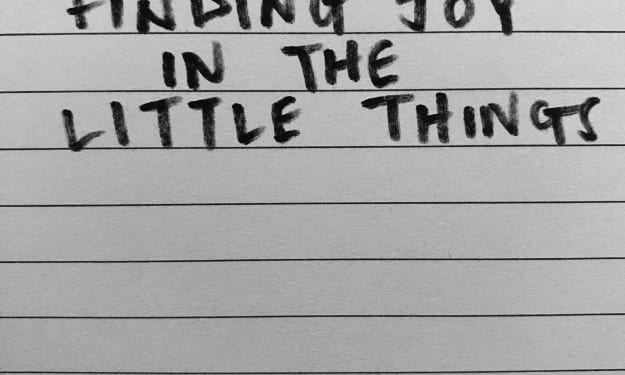 FINDING JOY
IN THE
LITTLE THINGS